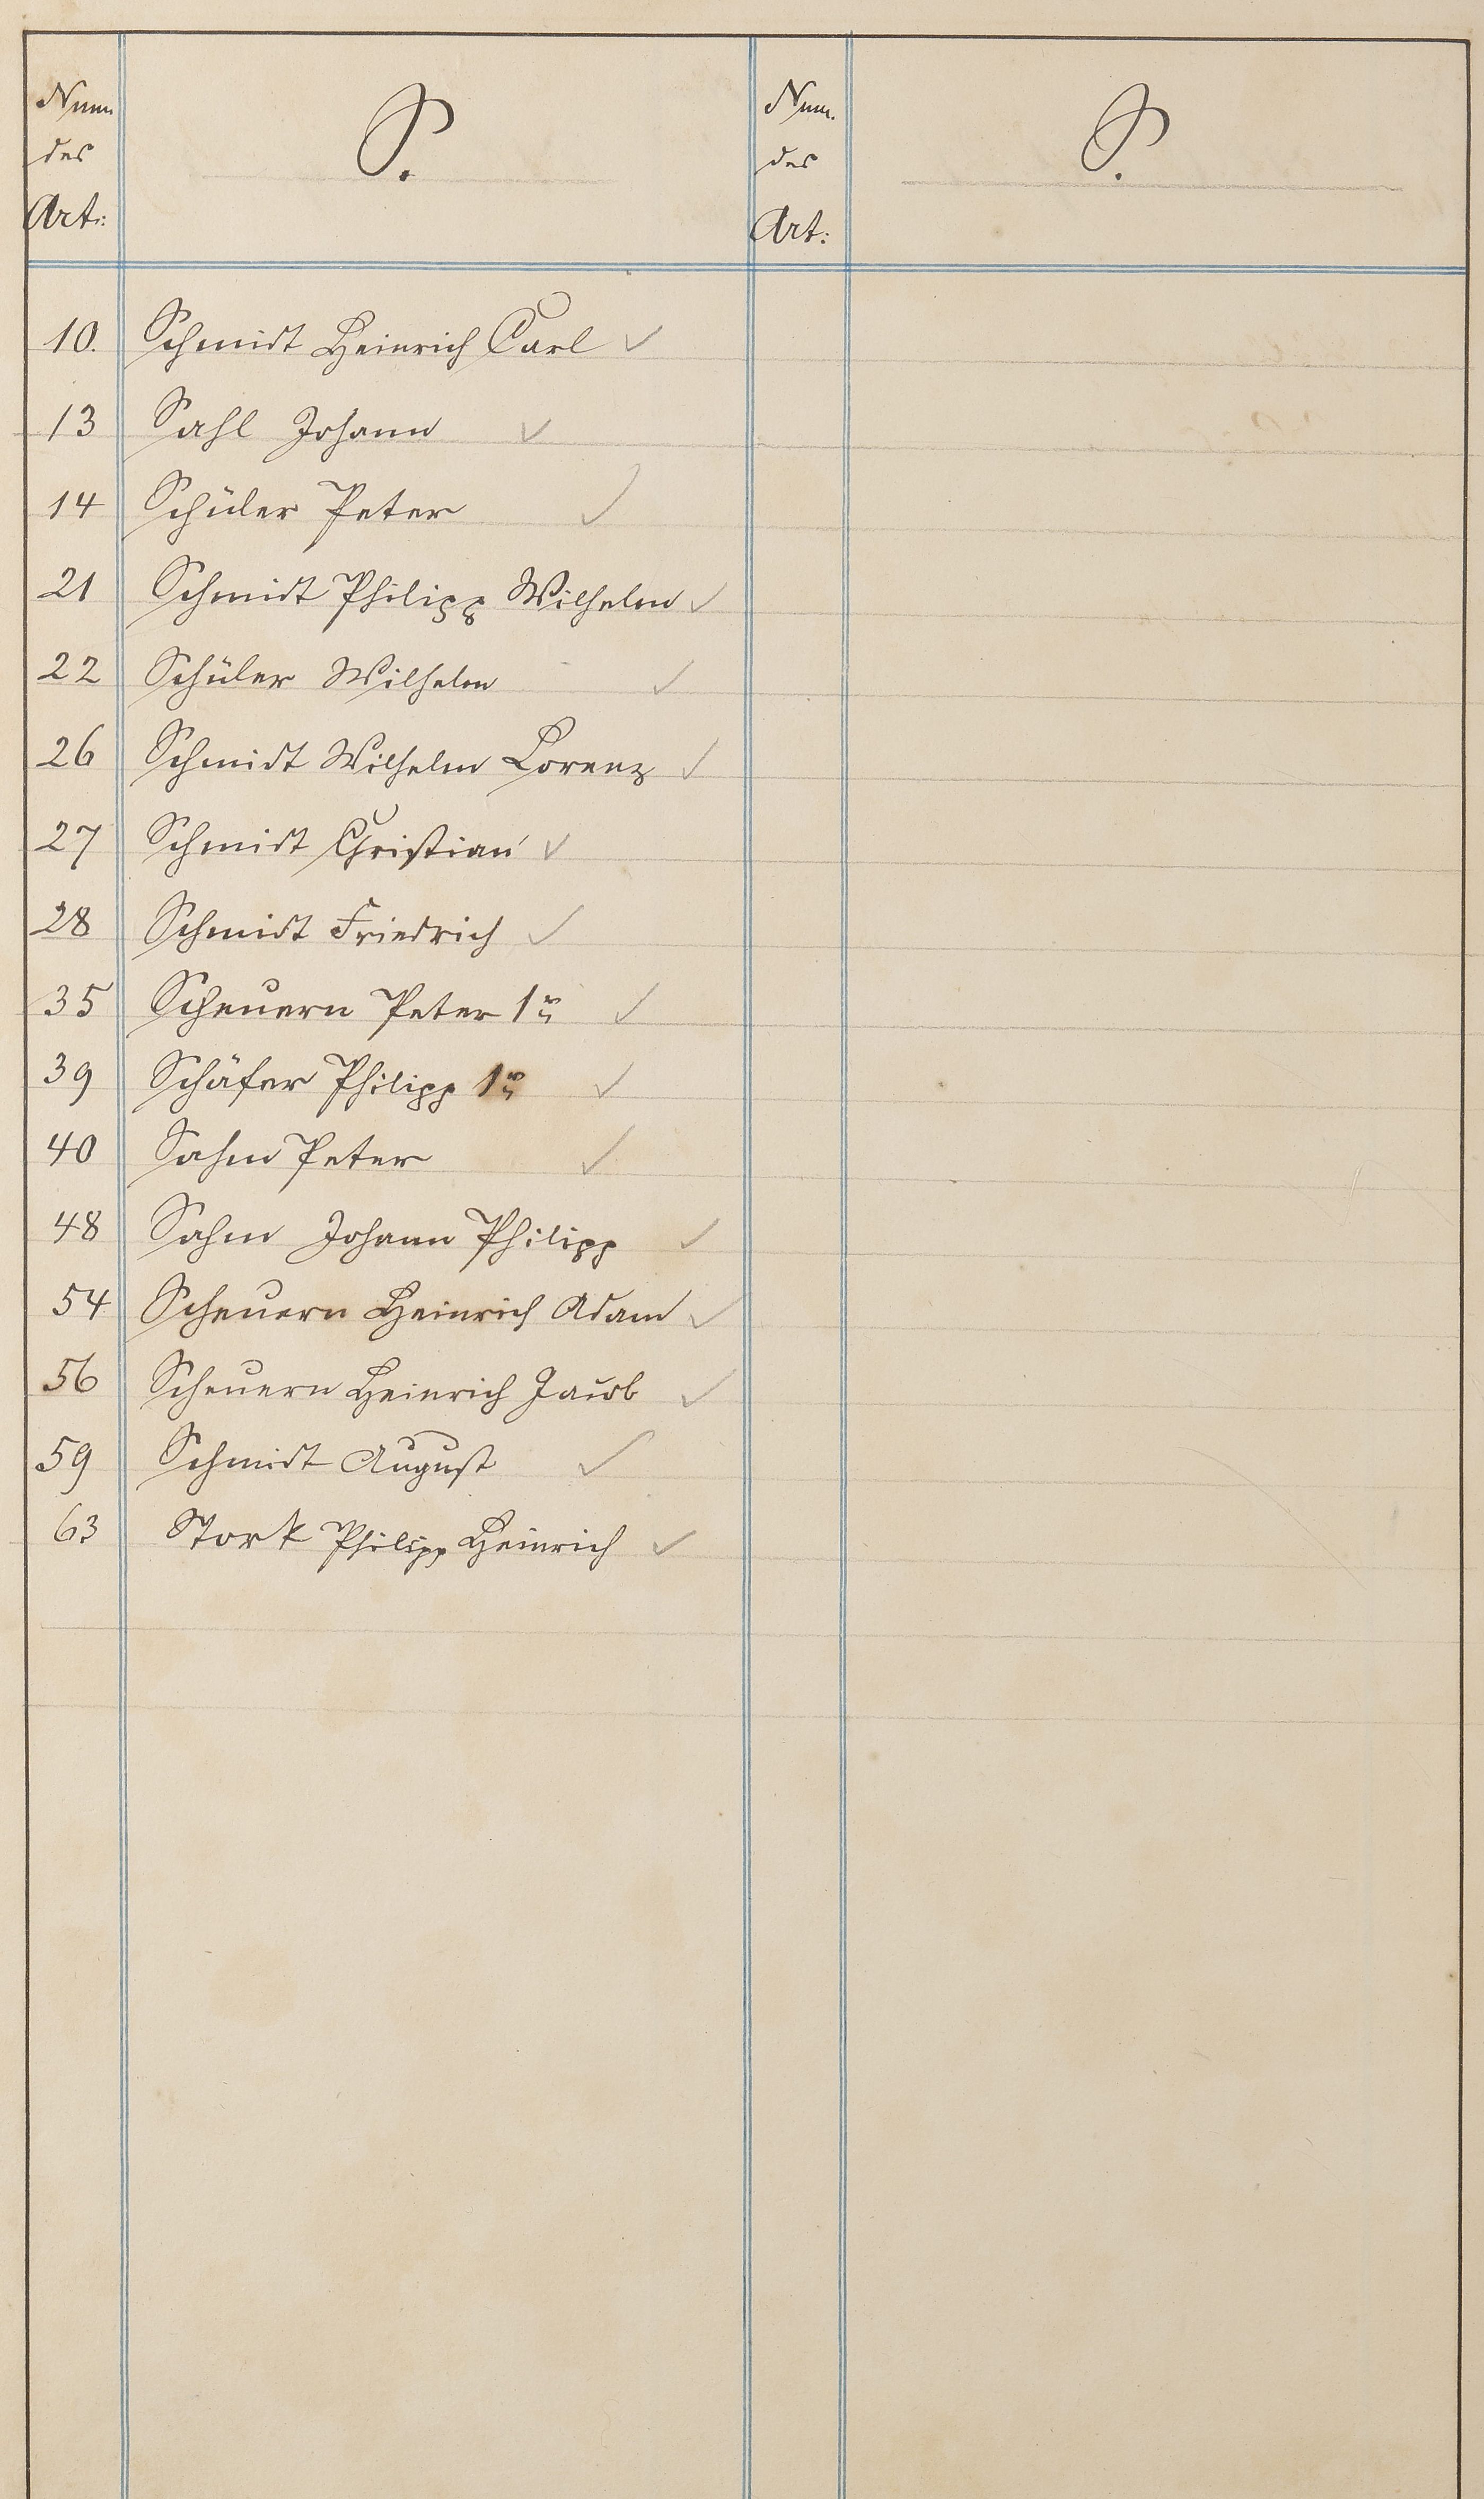 Num
des
Art:
S.
Num.
des
Art:
S.
10. Schmidt Heinrich Carl ✓
13 Sahl Johann ✓
14 Schüler Peter ✓
21 Schmidt Philipp Wilhelm ✓
22 Schüler Wilhelm ✓
26 Schmidt Wilhelm Lorenz ✓
27 Schmidt Christian ✓
28 Schmidt Friedrich ✓
35 Scheuern Peter 1r ✓
39 Schäfer Philipp 1r ✓
40 Sahm Peter ✓
48 Sahm Johann Philipp ✓
54 Scheuern Heinrich Adam ✓
56 Scheuern Heinrich Jacob ✓
59 Schmidt August ✓
63 Stork Philipp Heinrich ✓